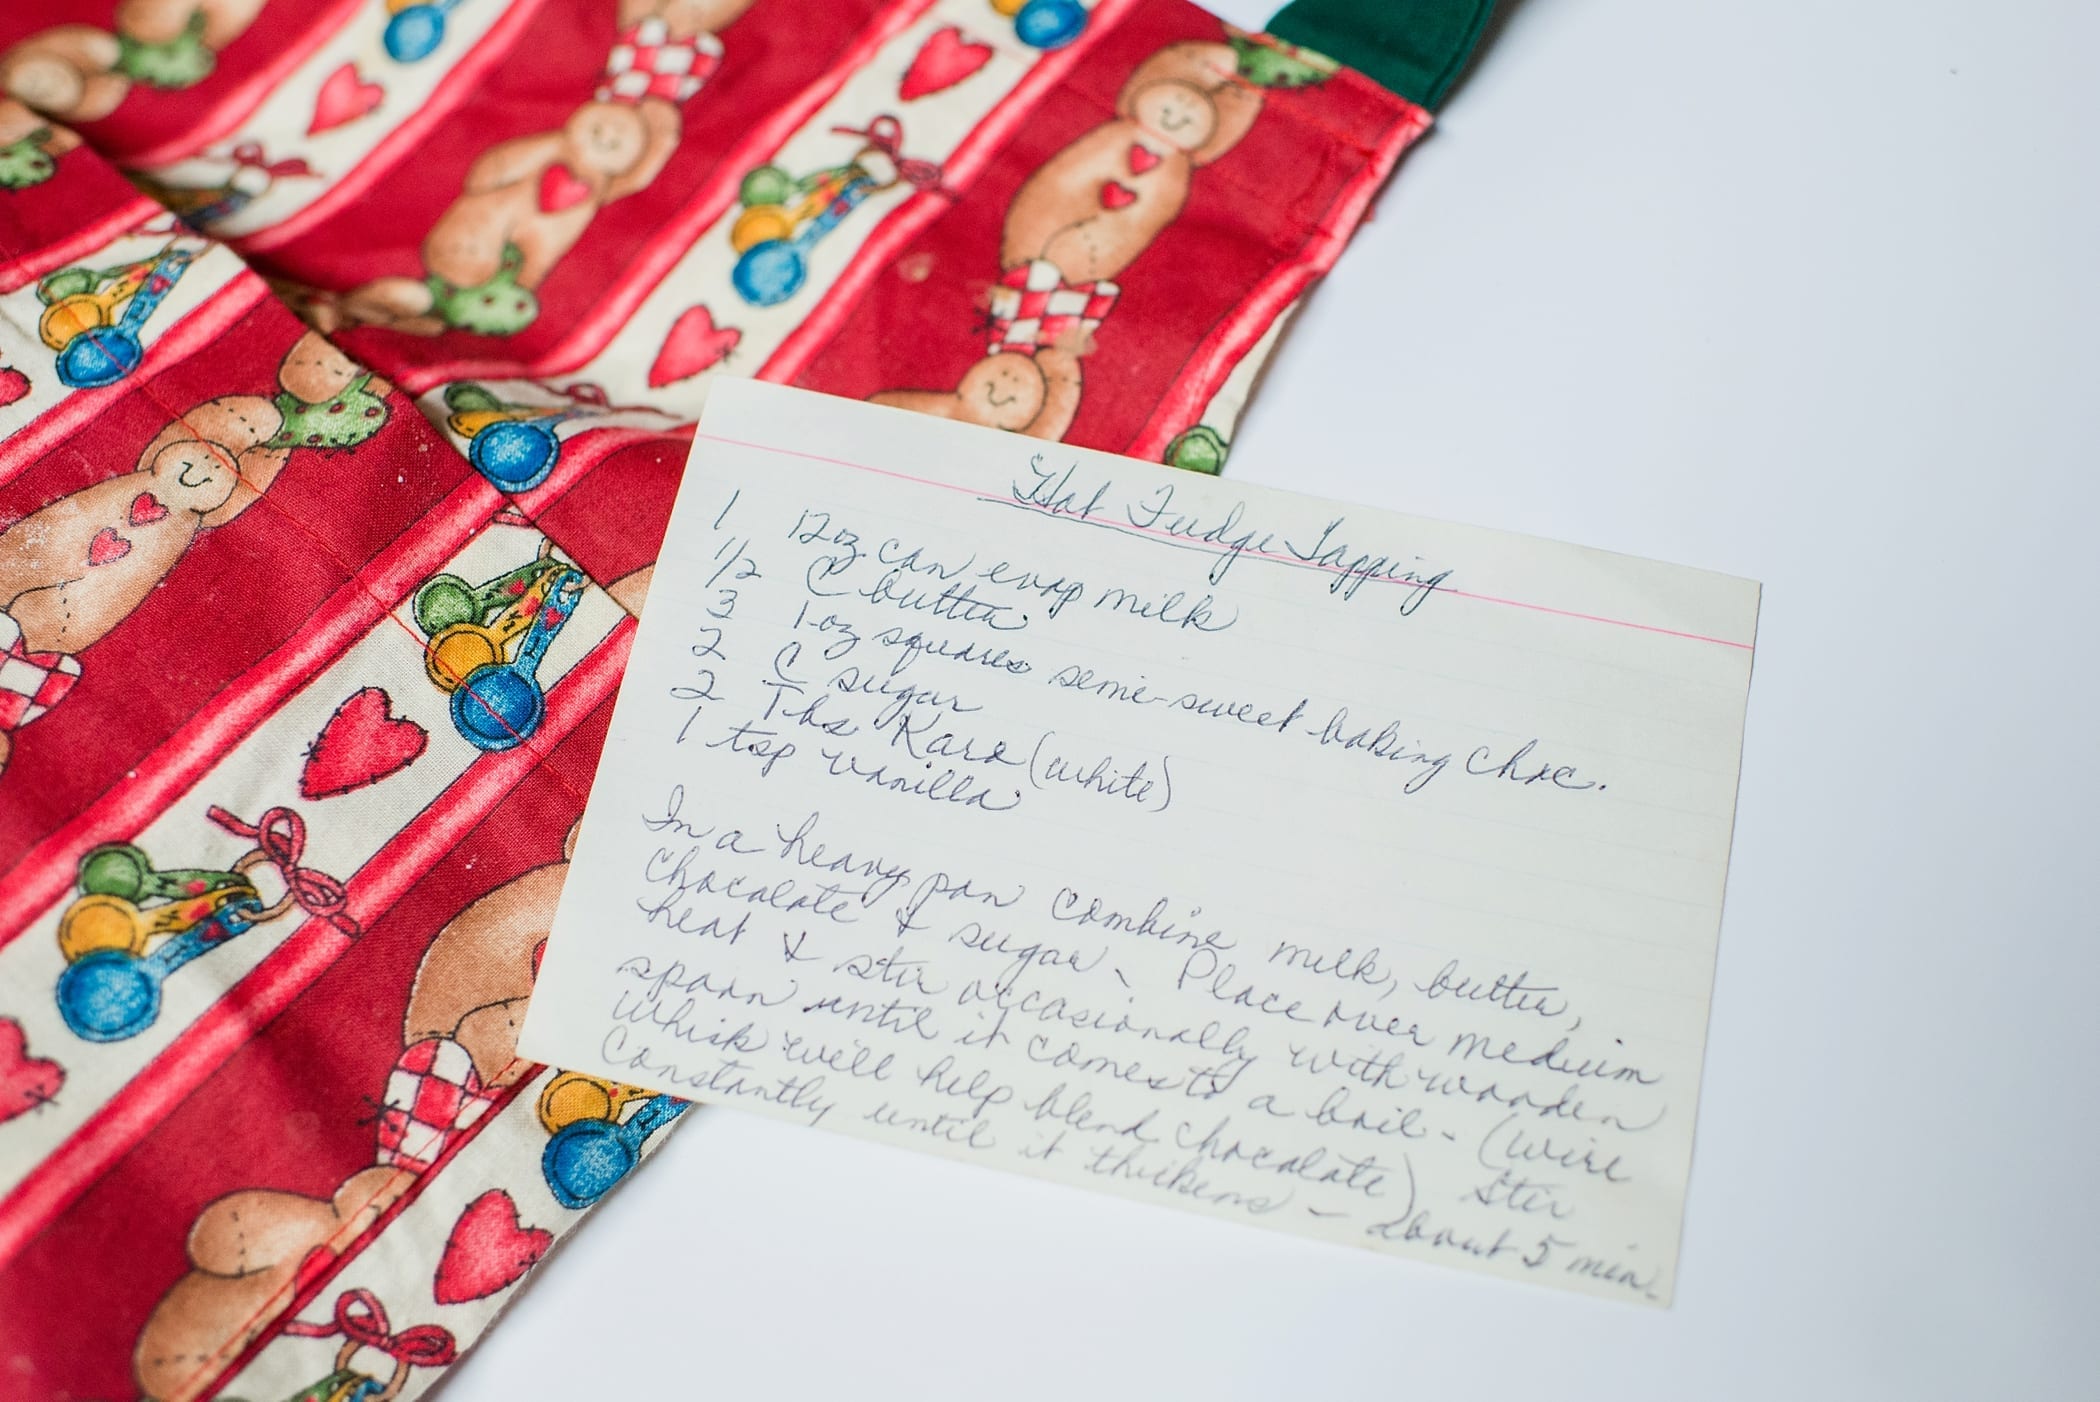 Hot Fudge Topping
1 12 oz can evap milk
1/2 C butter
3 1-oz squares semi-sweet baking choc.
2 C sugar
2 Tbs Karo (white)
1 tsp vanilla
In a heavy pan combine milk, butter,
chocolate & sugar. Place over medium
heat & stir occasionally with wooden
spoon until it comes to a boil - (wire
whisk will help blend chocolate) Stir
constantly until it thickens - about 5 min.